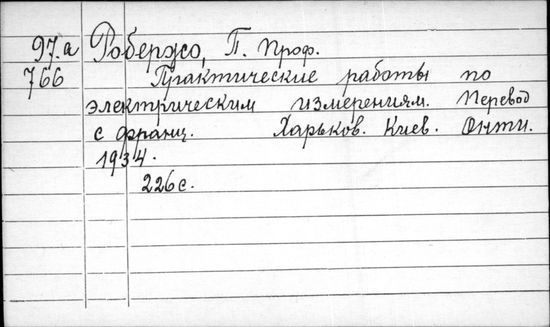 97.а Робержо, П. Проф.
766 Практические работы по
электрическим измерениям. Перевод
с франц. Харьков. Киев. Онти.
1934.
226с.